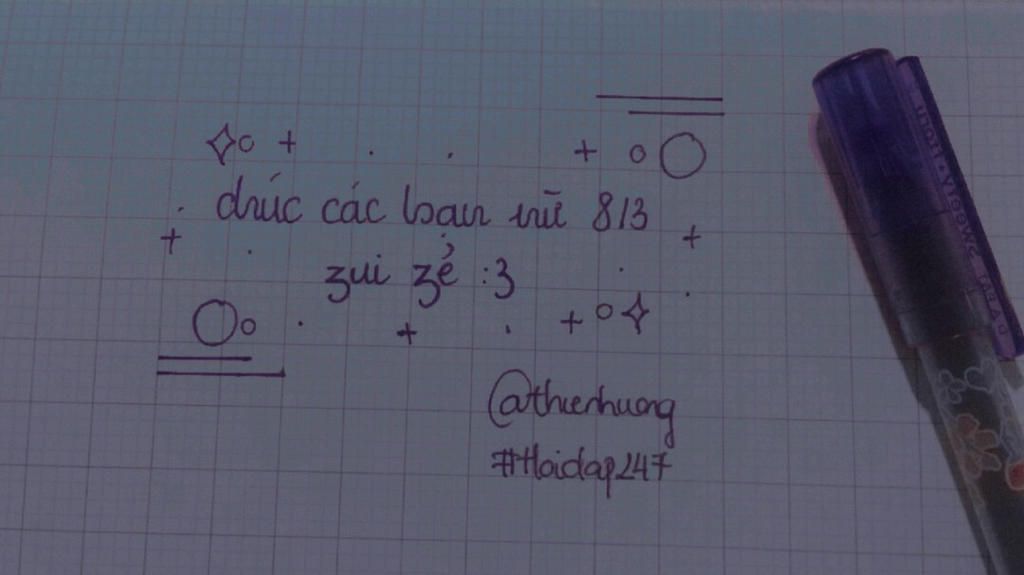 chúc các bạn nữ 8/3
zui zẻ :3
@thienhuong
#Hoidap247